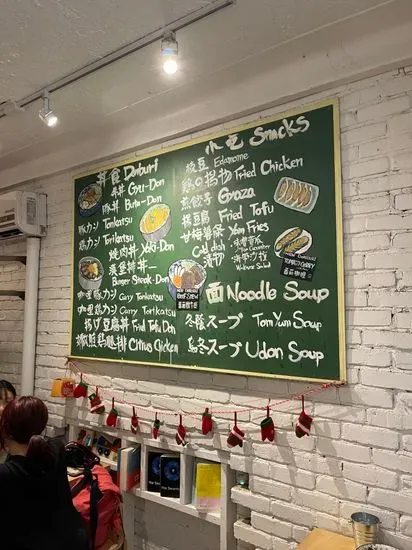 丼食 Donburi
牛丼 Gyu-Don
豚丼 Buta-Don
豚カシ Tonkatsu
鶏カシ Torikatsu
焼肉丼 Yaki-Don
漢堡排丼
Burger Steak-Don
咖哩豬カシ Curry Tonkatsu
咖哩鶏カシ Curry Torikatsu
揚げ豆腐丼 Fried Tofu Don
椒鹽鶏腿排 Citrus Chicken
小吃 Snacks
枝豆 Edamame
鶏の揚物 Fried Chicken
煎餃子 Gyoza
揚豆腐 Fried Tofu
甘梅薯條 Yam Fries
Cold dish
Wakame Salad
NEW DONBURI
TOMATO CURRY
蕃茄咖哩
麺 Noodle Soup
冬蔭スープ Tom Yum Soup
烏冬スープ Udon Soup